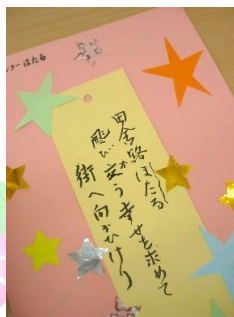 ンターほたる
田舎路ほたる
飛び交う幸せを求めて
街へ向かひけり